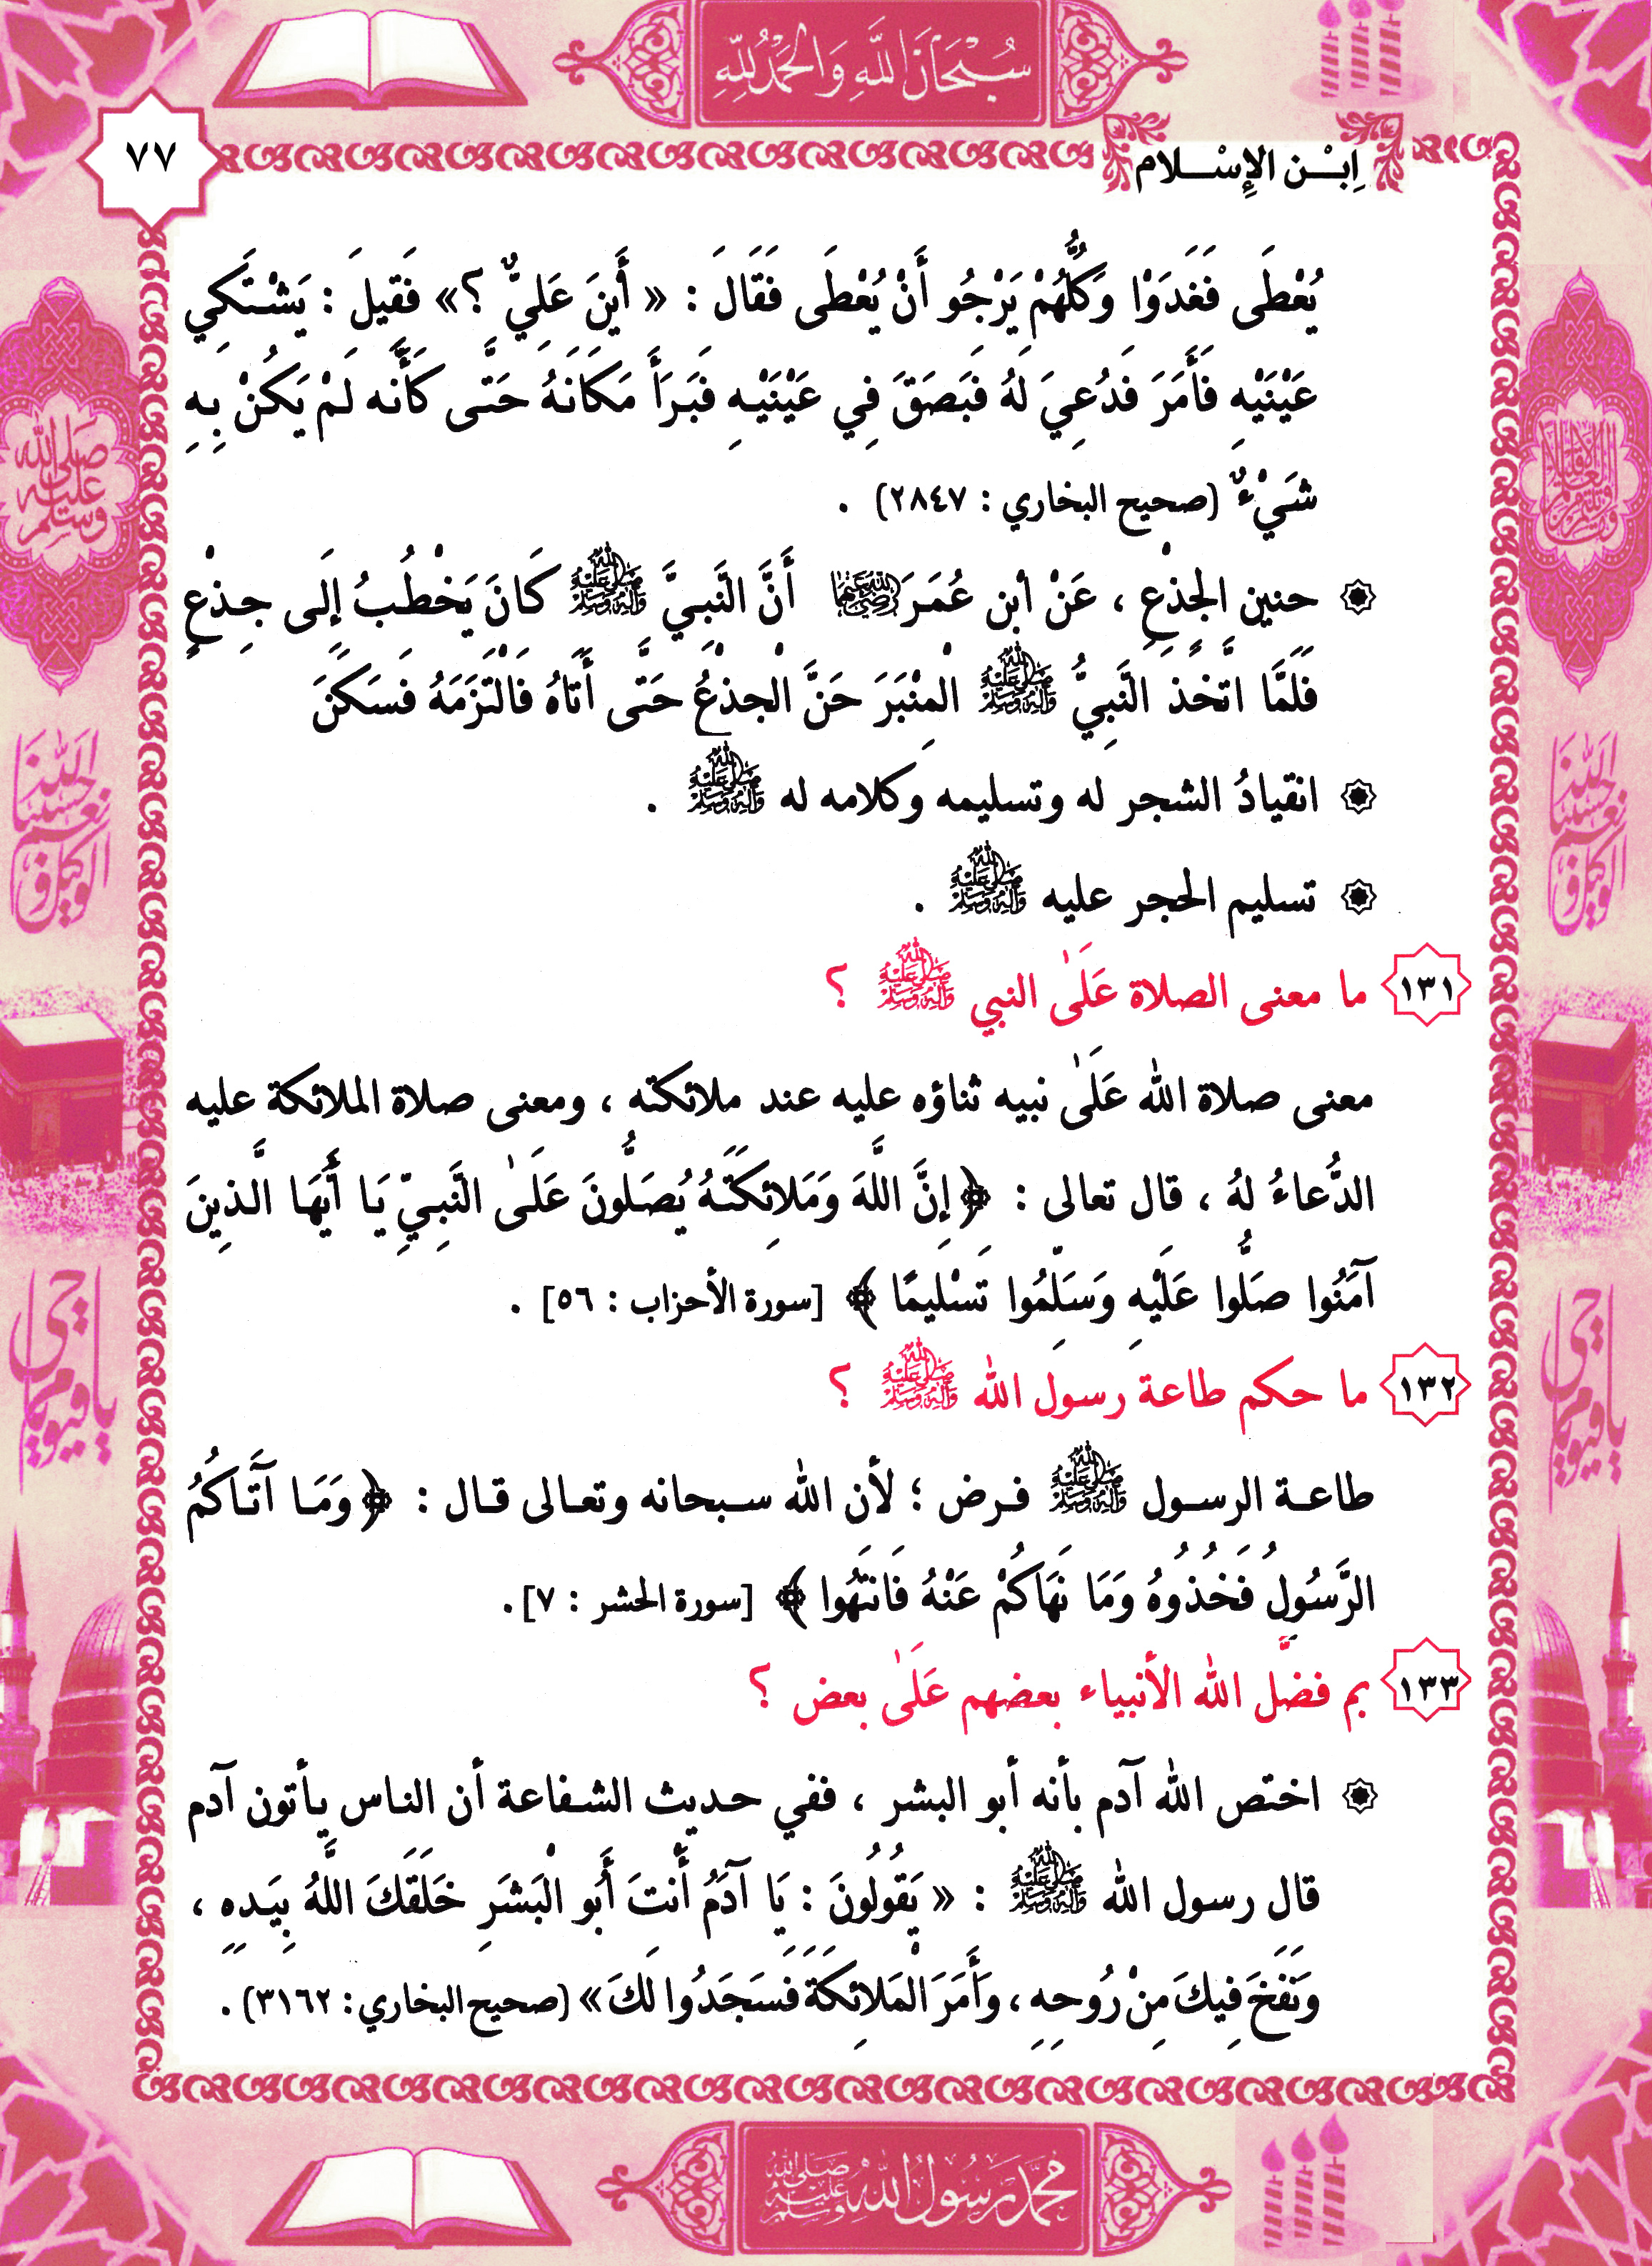 سُبْحَانَ اللَّهِ وَالْحَمْدُ لِلَّهِ
٧٧
اِبْـن الإِسْـلام
يُعْطَى فَغَدَوْا وَكُلُّهُمْ يَرْجُو أَنْ يُعْطَى فَقَالَ : « أَيْنَ عَلِيٌّ ؟» فَقِيلَ : يَشْتَكِي
عَيْنَيْهِ فَأَمَرَ فَدُعِيَ لَهُ فَبَصَقَ فِي عَيْنَيْهِ فَبَرَأَ مَكَانَهُ حَتَّى كَأَنَّه لَمْ يَكُنْ بِهِ
شَيْءٌ (صحيح البخاري : ٢٨٤٧) .
حنين الجِذْعِ ، عَنْ ابْنِ عُمَرَ رَضِيَ اللهُ عَنْهُمَا أَنَّ النَّبِيَّ ﷺ كَانَ يَخْطُبُ إِلَى جِذْعٍ
فَلَمَّا اتَّخَذَ النَّبِيُّ ﷺ الْمِنْبَرَ حَنَّ الْجِذْعُ حَتَّى أَتَاهُ فَالْتَزَمَهُ فَسَكَنَ
انقيادُ الشجر له وتسليمه وكلامه له ﷺ .
تسليم الحجر عليه ﷺ .
١٣١ ما معنى الصلاة عَلَىٰ النبي ﷺ ؟
معنى صلاة الله عَلَىٰ نبيه ثناؤه عليه عند ملائكته ، ومعنى صلاة الملائكة عليه
الدُّعاءُ لهُ ، قال تعالى : ﴿ إِنَّ اللَّهَ وَمَلائِكَتَهُ يُصَلُّونَ عَلَىٰ النَّبِيِّ يَا أَيُّهَا الَّذِينَ
آمَنُوا صَلُّوا عَلَيْهِ وَسَلِّمُوا تَسْلِيمًا ﴾ [سورة الأحزاب : ٥٦] .
١٣٢ ما حكم طاعة رسول الله ﷺ ؟
طاعـة الرسـول ﷺ فـرض ؛ لأن الله سـبحانه وتعـالى قـال : ﴿ وَمَـا آتَـاكُمُ
الرَّسُولُ فَخُذُوهُ وَمَا نَهَاكُمْ عَنْهُ فَانتَهُوا ﴾ [سورة الحشر : ٧].
١٣٣ بم فضَّل الله الأنبياء بعضهم عَلَىٰ بعض ؟
اختص الله آدم بأنه أبو البشر ، ففي حديث الشفاعة أن الناس يأتون آدم
قال رسول الله ﷺ : « يَقُولُونَ : يَا آدَمُ أَنْتَ أَبُو الْبَشَرِ خَلَقَكَ اللَّهُ بِيَدِهِ ،
وَنَفَخَ فِيكَ مِنْ رُوحِهِ ، وَأَمَرَ الْمَلائِكَةَ فَسَجَدُوا لَكَ » (صحيح البخاري : ٣١٦٢) .
صلى الله عليه وسلم
حسبنا الله ونعم الوكيل
حسبنا الله ونعم الوكيل
يا حي يا قيوم
يا حي يا قيوم
محمد رسول الله صلى الله عليه وسلم